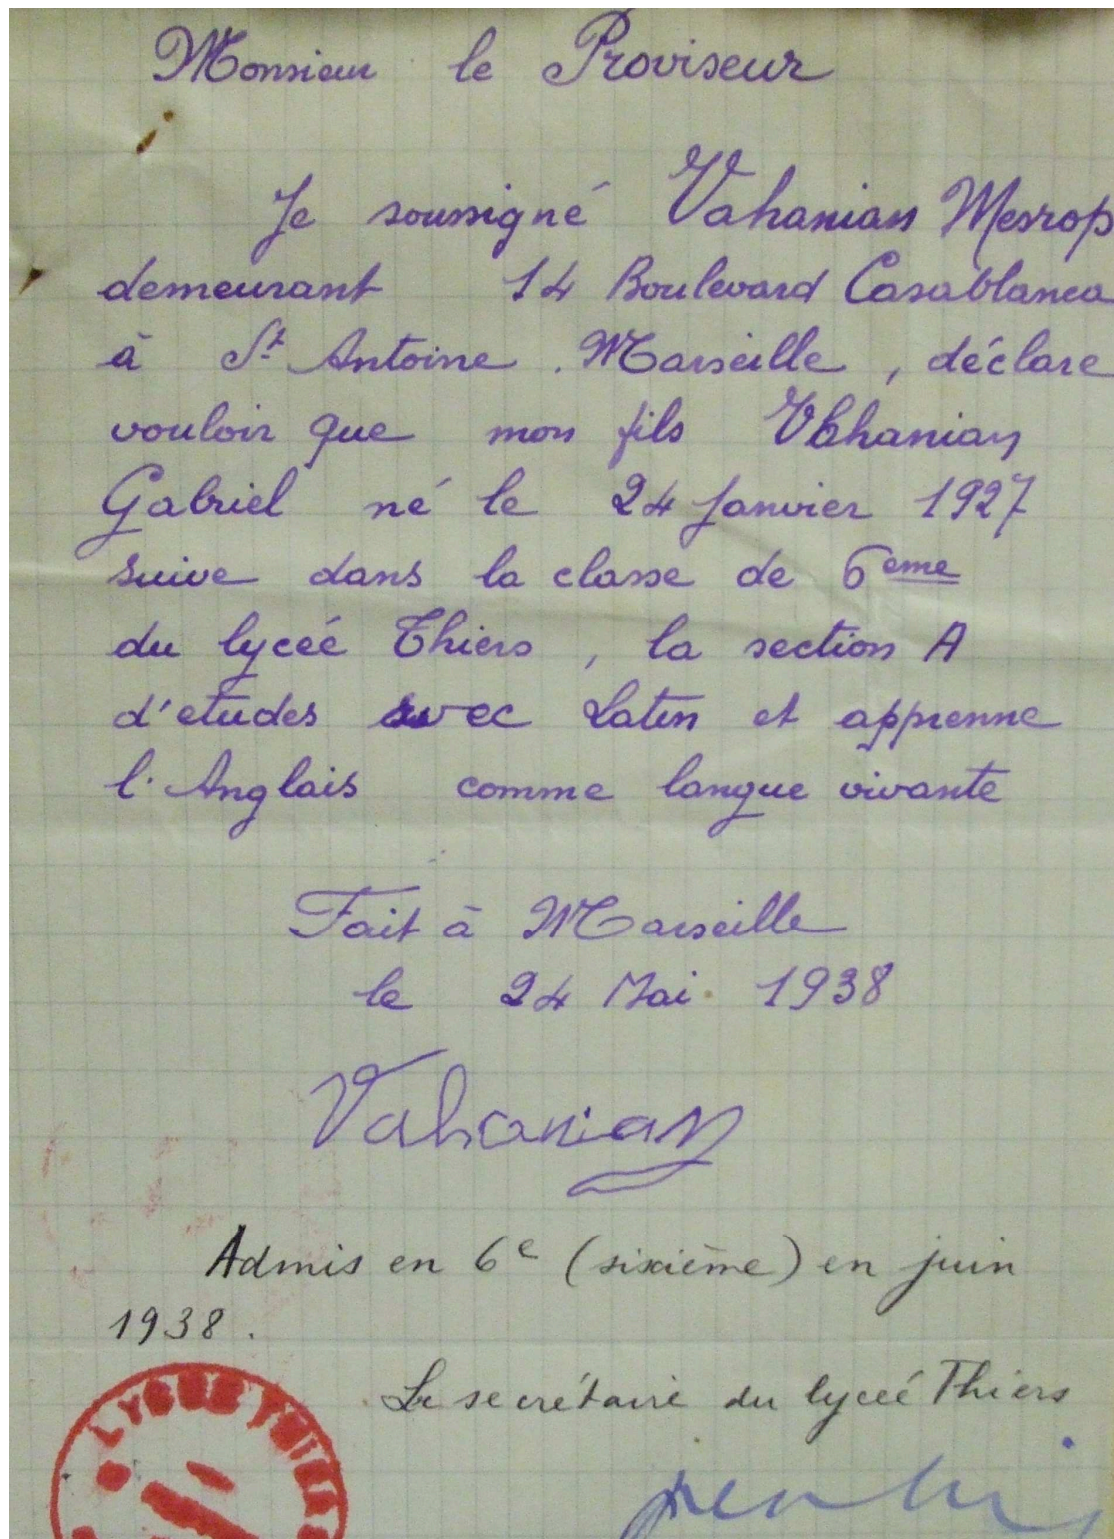 Monsieur le Proviseur
Je soussigné Vahanian Mesrop
demeurant 14 Boulevard Casablanca
à St Antoine . Marseille , déclare
vouloir que mon fils Vahanian
Gabriel né le 24 Janvier 1927
suive dans la classe de 6eme
du lyceé Thiers , la section A
d'etudes avec Latin et apprenne
l'Anglais comme langue vivante
Fait à Marseille
le 24 Mai 1938
Vahanian
Admis en 6e (sixième) en juin
1938 .
Le secrétaire du lyceé Thiers
LYCEE THIERS